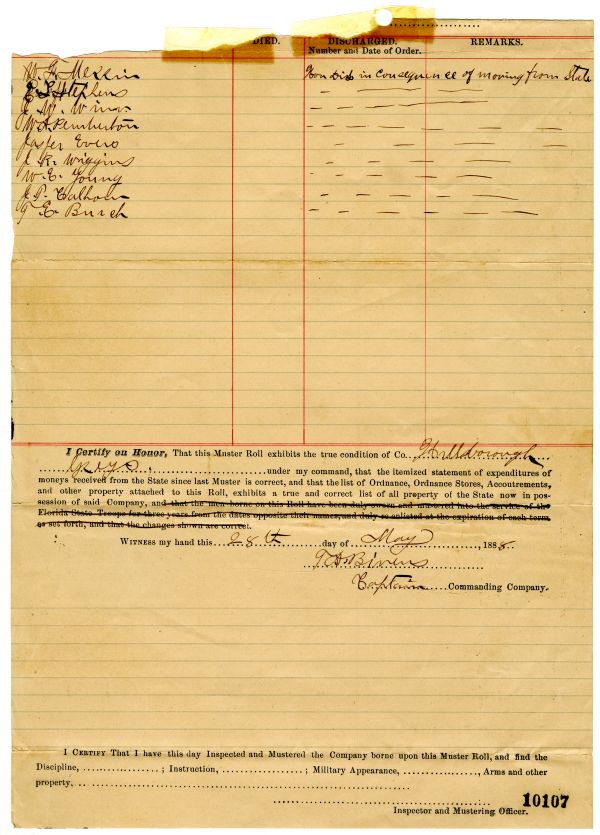 DIED. DISCHARGED. REMARKS.
Number and Date of Order.
Hon Dis in consequence of moving from State
Stephens
W. Winn
Pemberton
Jasper Evers
R. Wiggins
W. E. Young
P. Calhoun
E. Burch
I Certify on Honor, That this Muster Roll exhibits the true condition of Co. Hillsborough
Greys under my command, that the itemized statement of expenditures of
moneys received from the State since last Muster is correct, and that the list of Ordnance, Ordnance Stores, Accoutrements,
and other property attached to this Roll, exhibits a true and correct list of all property of the State now in pos-
session of said Company, and that the men borne on this Roll have been duly owned and mustered into the service of the
Florida State Troops for three years from the dates opposite their names, and duly so enlisted at the expiration of each term
as set forth, and that the changes shown are correct.
WITNESS my hand this 28th day of May, 1888.
Bivens
Captain Commanding Company.
I CERTIFY That I have this day Inspected and Mustered the Company borne upon this Muster Roll, and find the
Discipline, ; Instruction, ; Military Appearance, , Arms and other
property.
10107
Inspector and Mustering Officer.